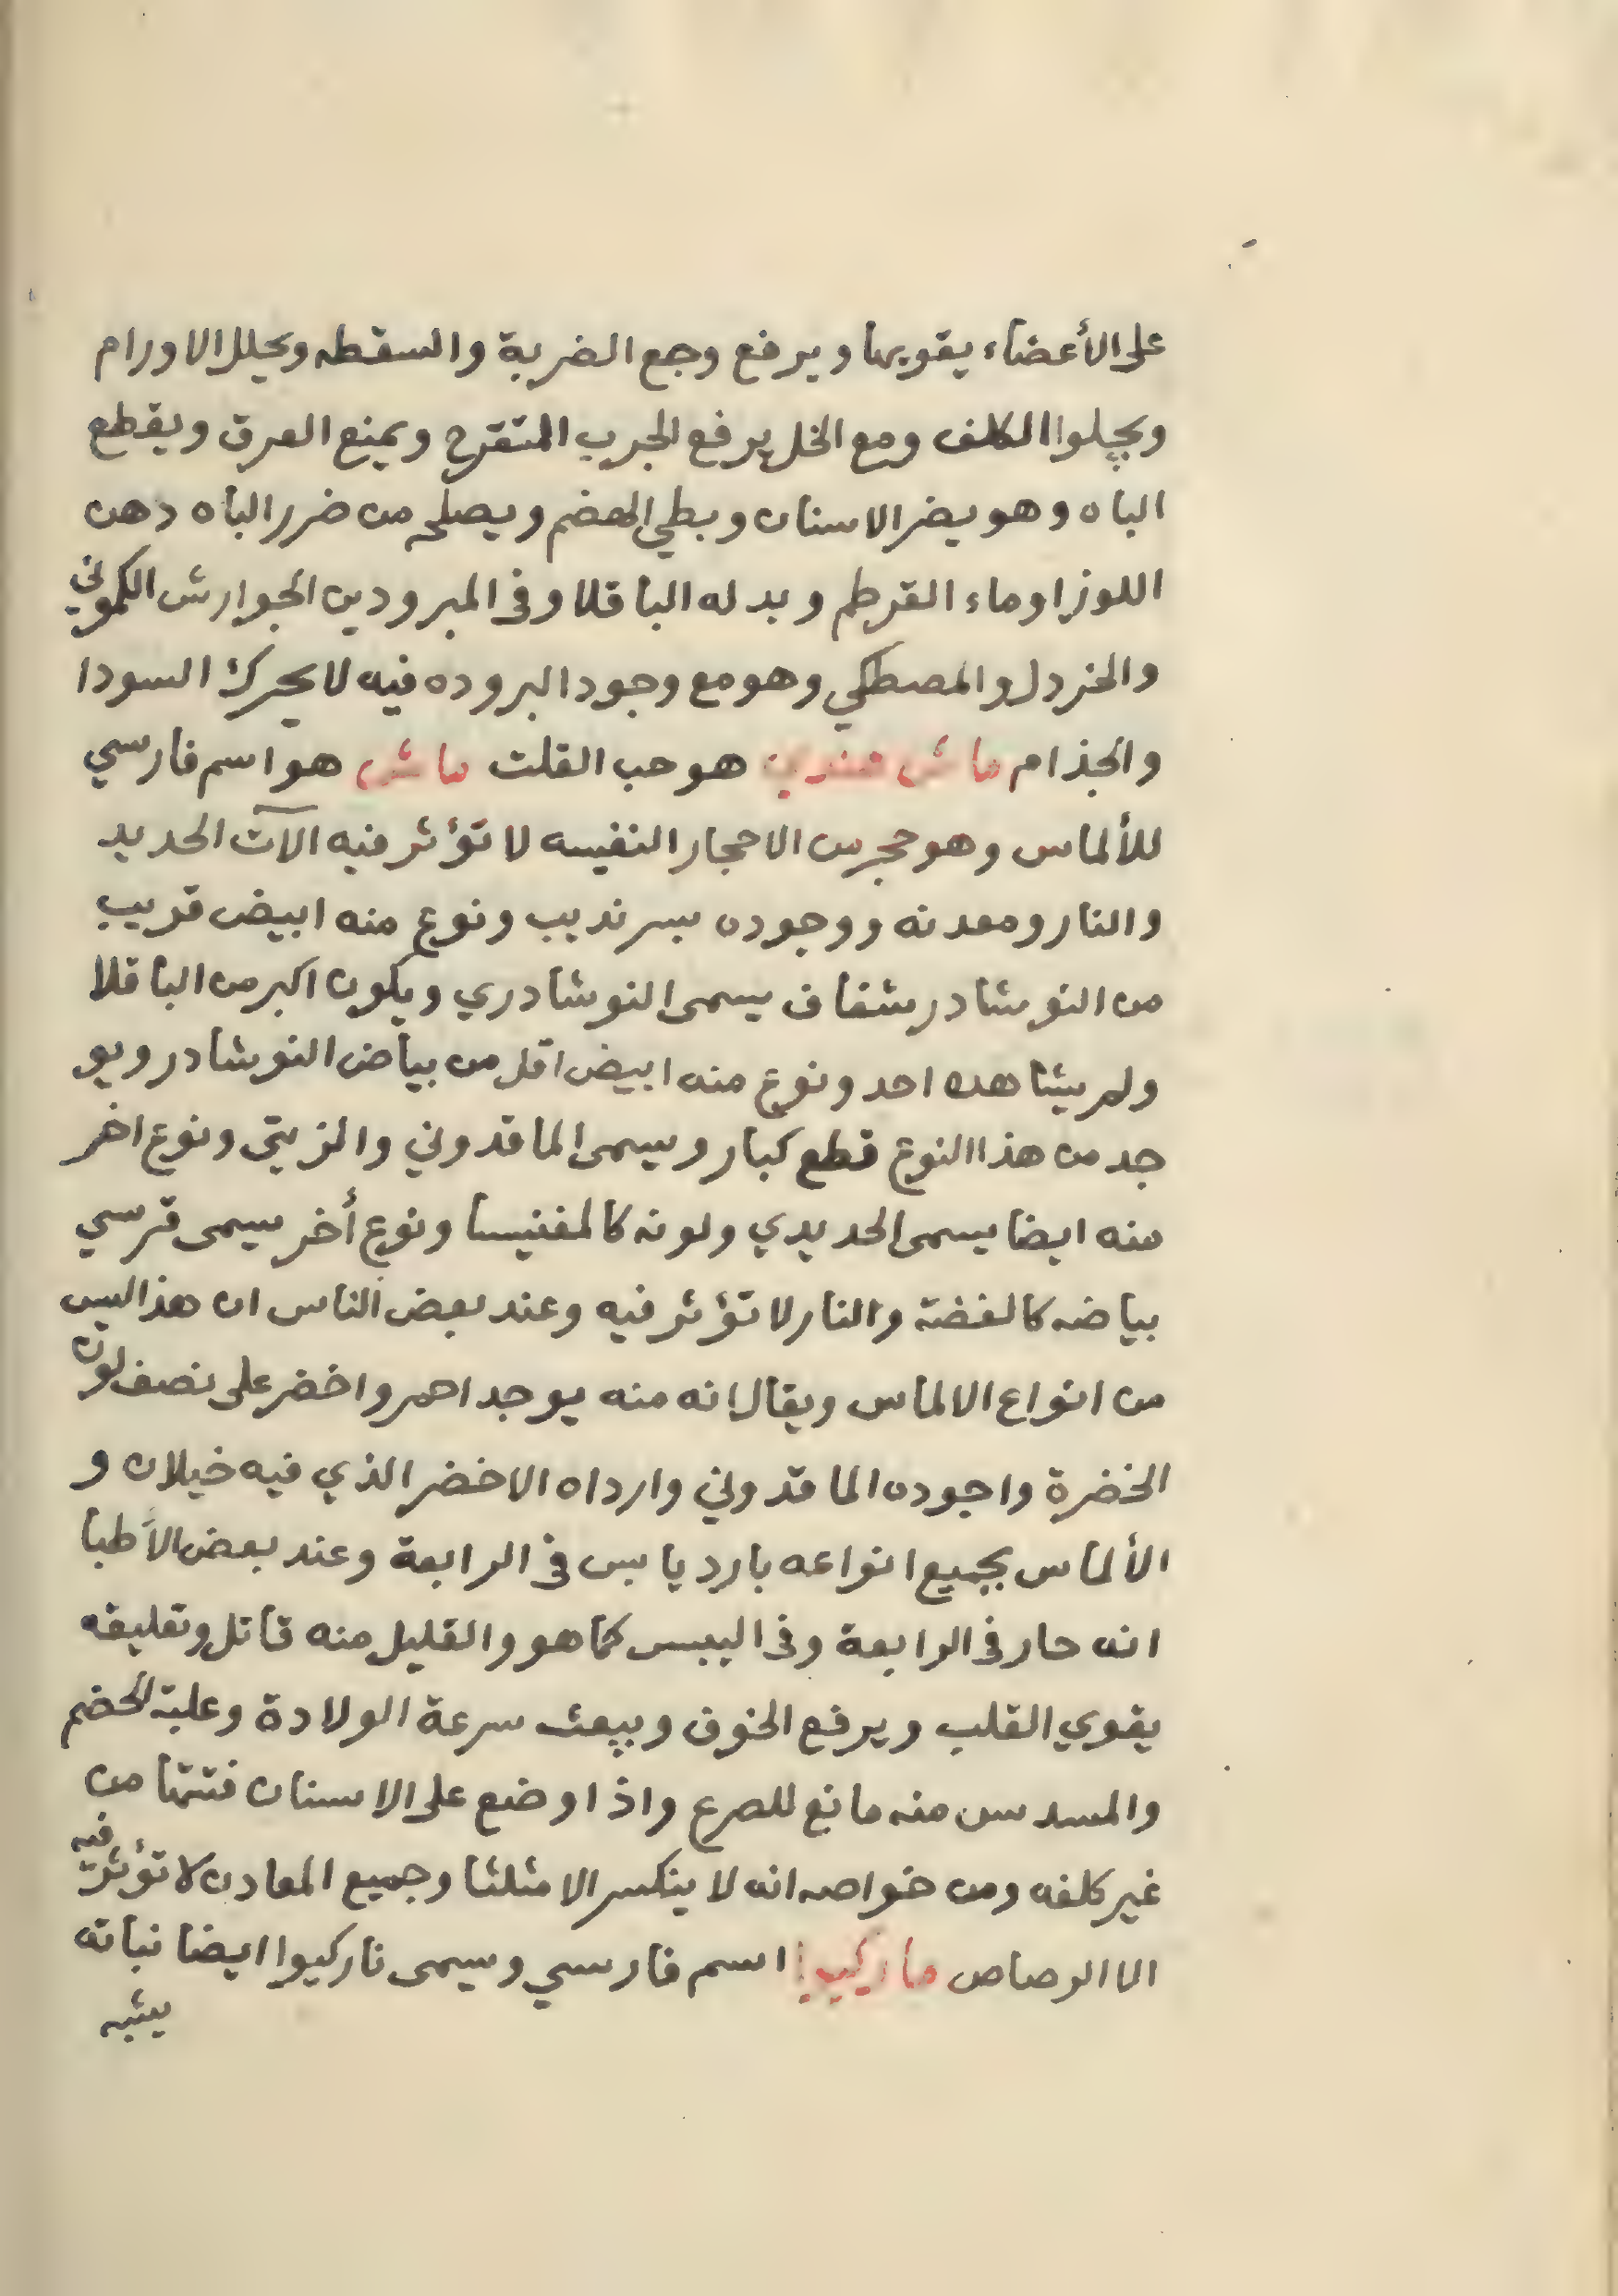 على الأعضاء يقويها ويرفع وجع الضربة والسقطه ويحلل الاورام
ويجلوا الكلف ومع الخل يرفع الجرب المتقرح ويمنع العرق ويقطع
الباه وهو يضر الاسنان وبطي الهضم ويصلحه من ضرر الباه دهن
اللوز او ماء القرطم وبدله الباقلا وفى المبرودين الجوارش الكموني
والخردل والمصطكي وهو مع وجود البروده فيه لا يحرك السودا
والجذام ماش هندي هو حب القلت ماش هو اسم فارسي
للألماس وهو حجر من الاحجار النفيسه لا تؤثر فيه الآت الحديد
والنار ومعدنه ووجوده بسرنديب ونوع منه ابيض قريب
من النوشادر شفاف يسمى النوشادري ويكون اكبر من الباقلا
ولم يشاهده احد ونوع منه ابيض اقل من بياض النوشادر ويو
جد من هذا النوع قطع كبار ويسمى الماقدوني والزيتى ونوع اخر
منه ايضا يسمى الحديدي ولونه كالمغنيسا ونوع أخر يسمى قرسي
بياضه كالفضة والنار لا تؤثر فيه وعند بعض الناس ان هذا ليس
من انواع الالماس ويقال انه منه يوجد احمر واخضر على نصف لون
الخضرة واجوده الماقدوني وارداه الاخضر الذي فيه خيلان و
الألماس بجميع انواعه بارد يابس فى الرابعة وعند بعض الأطبا
انه حار فى الرابعة وفى اليبس كما هو والقليل منه قاتل وتعليقه
يقوي القلب ويرفع الخوف ويبعث سرعة الولادة وعلبة الخضم
والمسدس منه مانع للصرع واذا وضع على الاسنان فتتها من
غير كلفه ومن خواصه انه لا ينكسر الا مثلثا وجميع المعادن لا تؤثر فيه
الا الرصاص ماركيوا اسم فارسي ويسمى ناركيوا ايضا نباته
يشبه